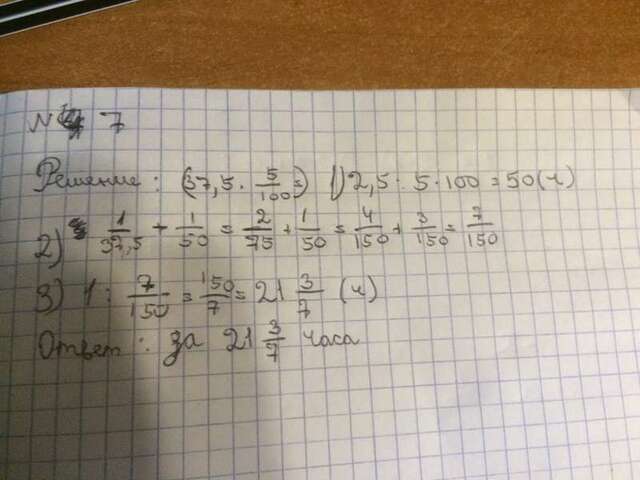 № 7
Решение: (37,5 · 5/100 =) 1) 2,5 : 5 · 100 = 50 (ч)
2) 1/37,5 + 1/50 = 2/75 + 1/50 = 4/150 + 3/150 = 7/150
3) 1 : 7/150 = 150/7 = 21 3/7 (ч)
Ответ: за 21 3/7 часа